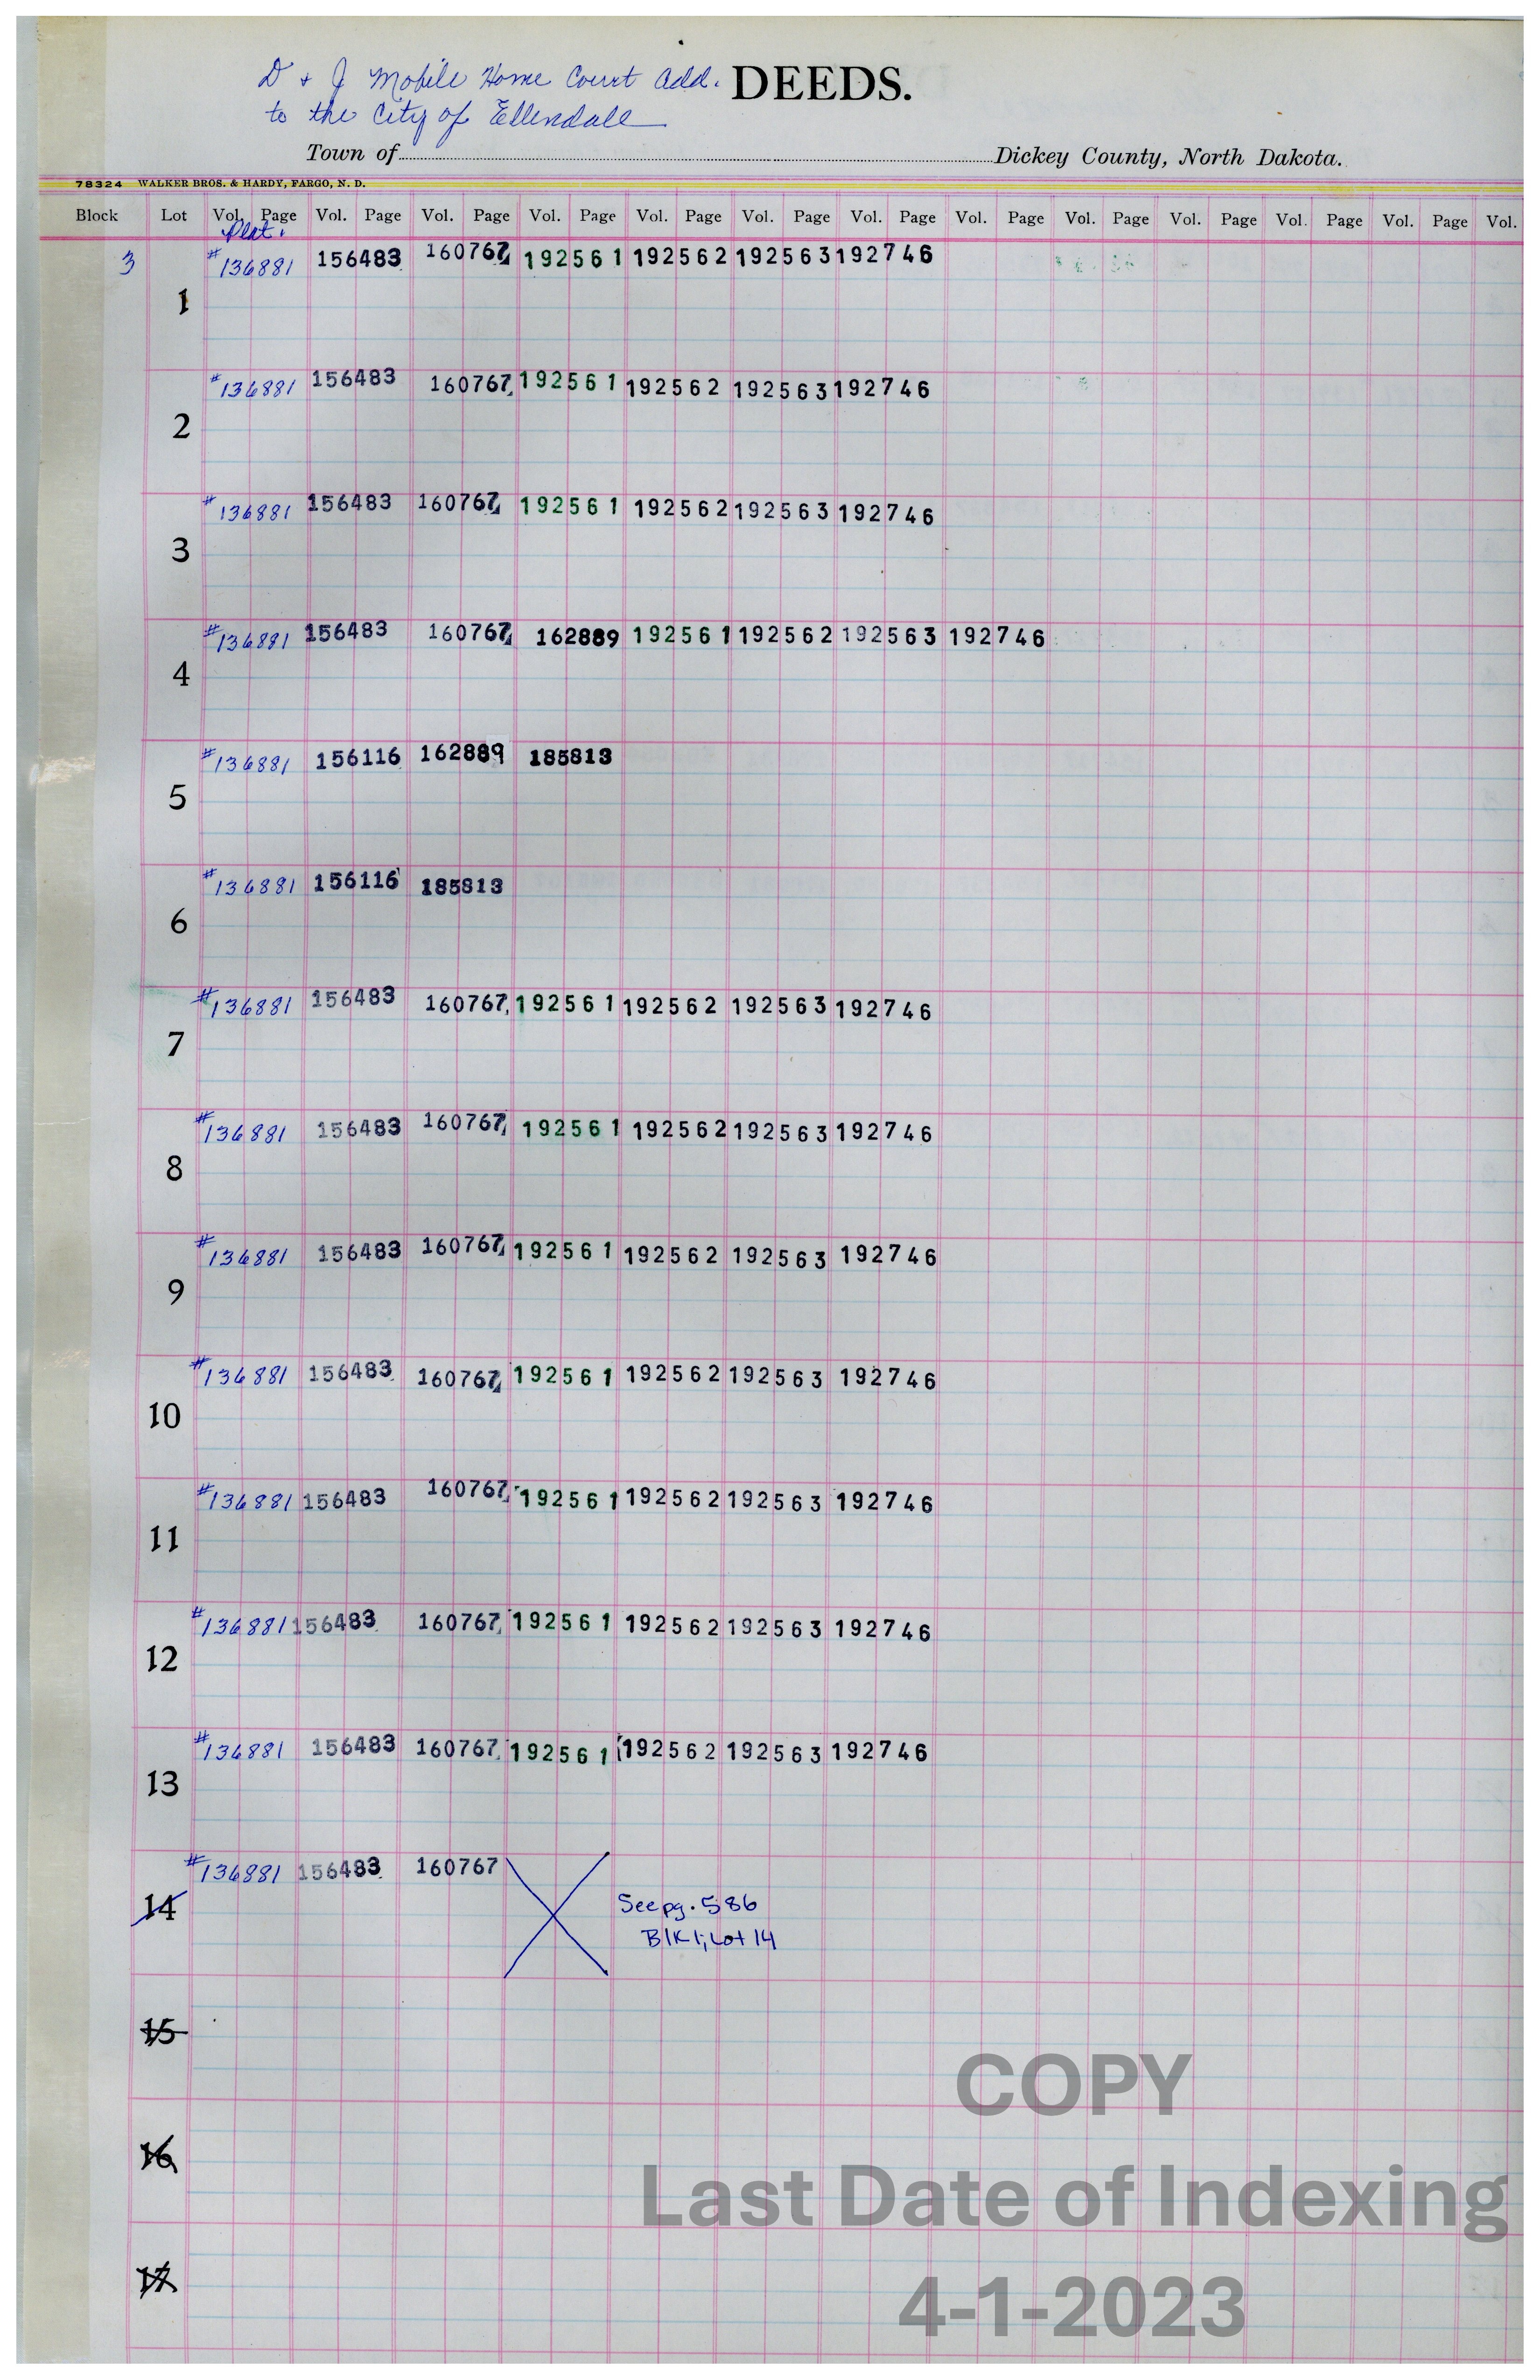 D & J Mobile Home Court Add. DEEDS.
to the City of Ellendale
Town of Dickey County, North Dakota.
78324 WALKER BROS. & HARDY, FARGO, N. D.
Block Lot Vol. Page Vol. Page Vol. Page Vol. Page Vol. Page Vol. Page Vol. Page Vol. Page Vol. Page Vol. Page Vol. Page Vol. Page Vol.
Plat.
3 #136881 156483 160767 192561 192562 192563 192746
1
#136881 156483 160767 192561 192562 192563 192746
2
#136881 156483 160767 192561 192562 192563 192746
3
#136881 156483 160767 162889 192561 192562 192563 192746
4
#136881 156116 162889 185813
5
#136881 156116 185813
6
#136881 156483 160767 192561 192562 192563 192746
7
#136881 156483 160767 192561 192562 192563 192746
8
#136881 156483 160767 192561 192562 192563 192746
9
#136881 156483 160767 192561 192562 192563 192746
10
#136881 156483 160767 192561 192562 192563 192746
11
#136881 156483 160767 192561 192562 192563 192746
12
#136881 156483 160767 192561 192562 192563 192746
13
#136881 156483 160767
14 See pg. 586
Blk 1, Lot 14
15
16
17
COPY
Last Date of Indexing
4-1-2023